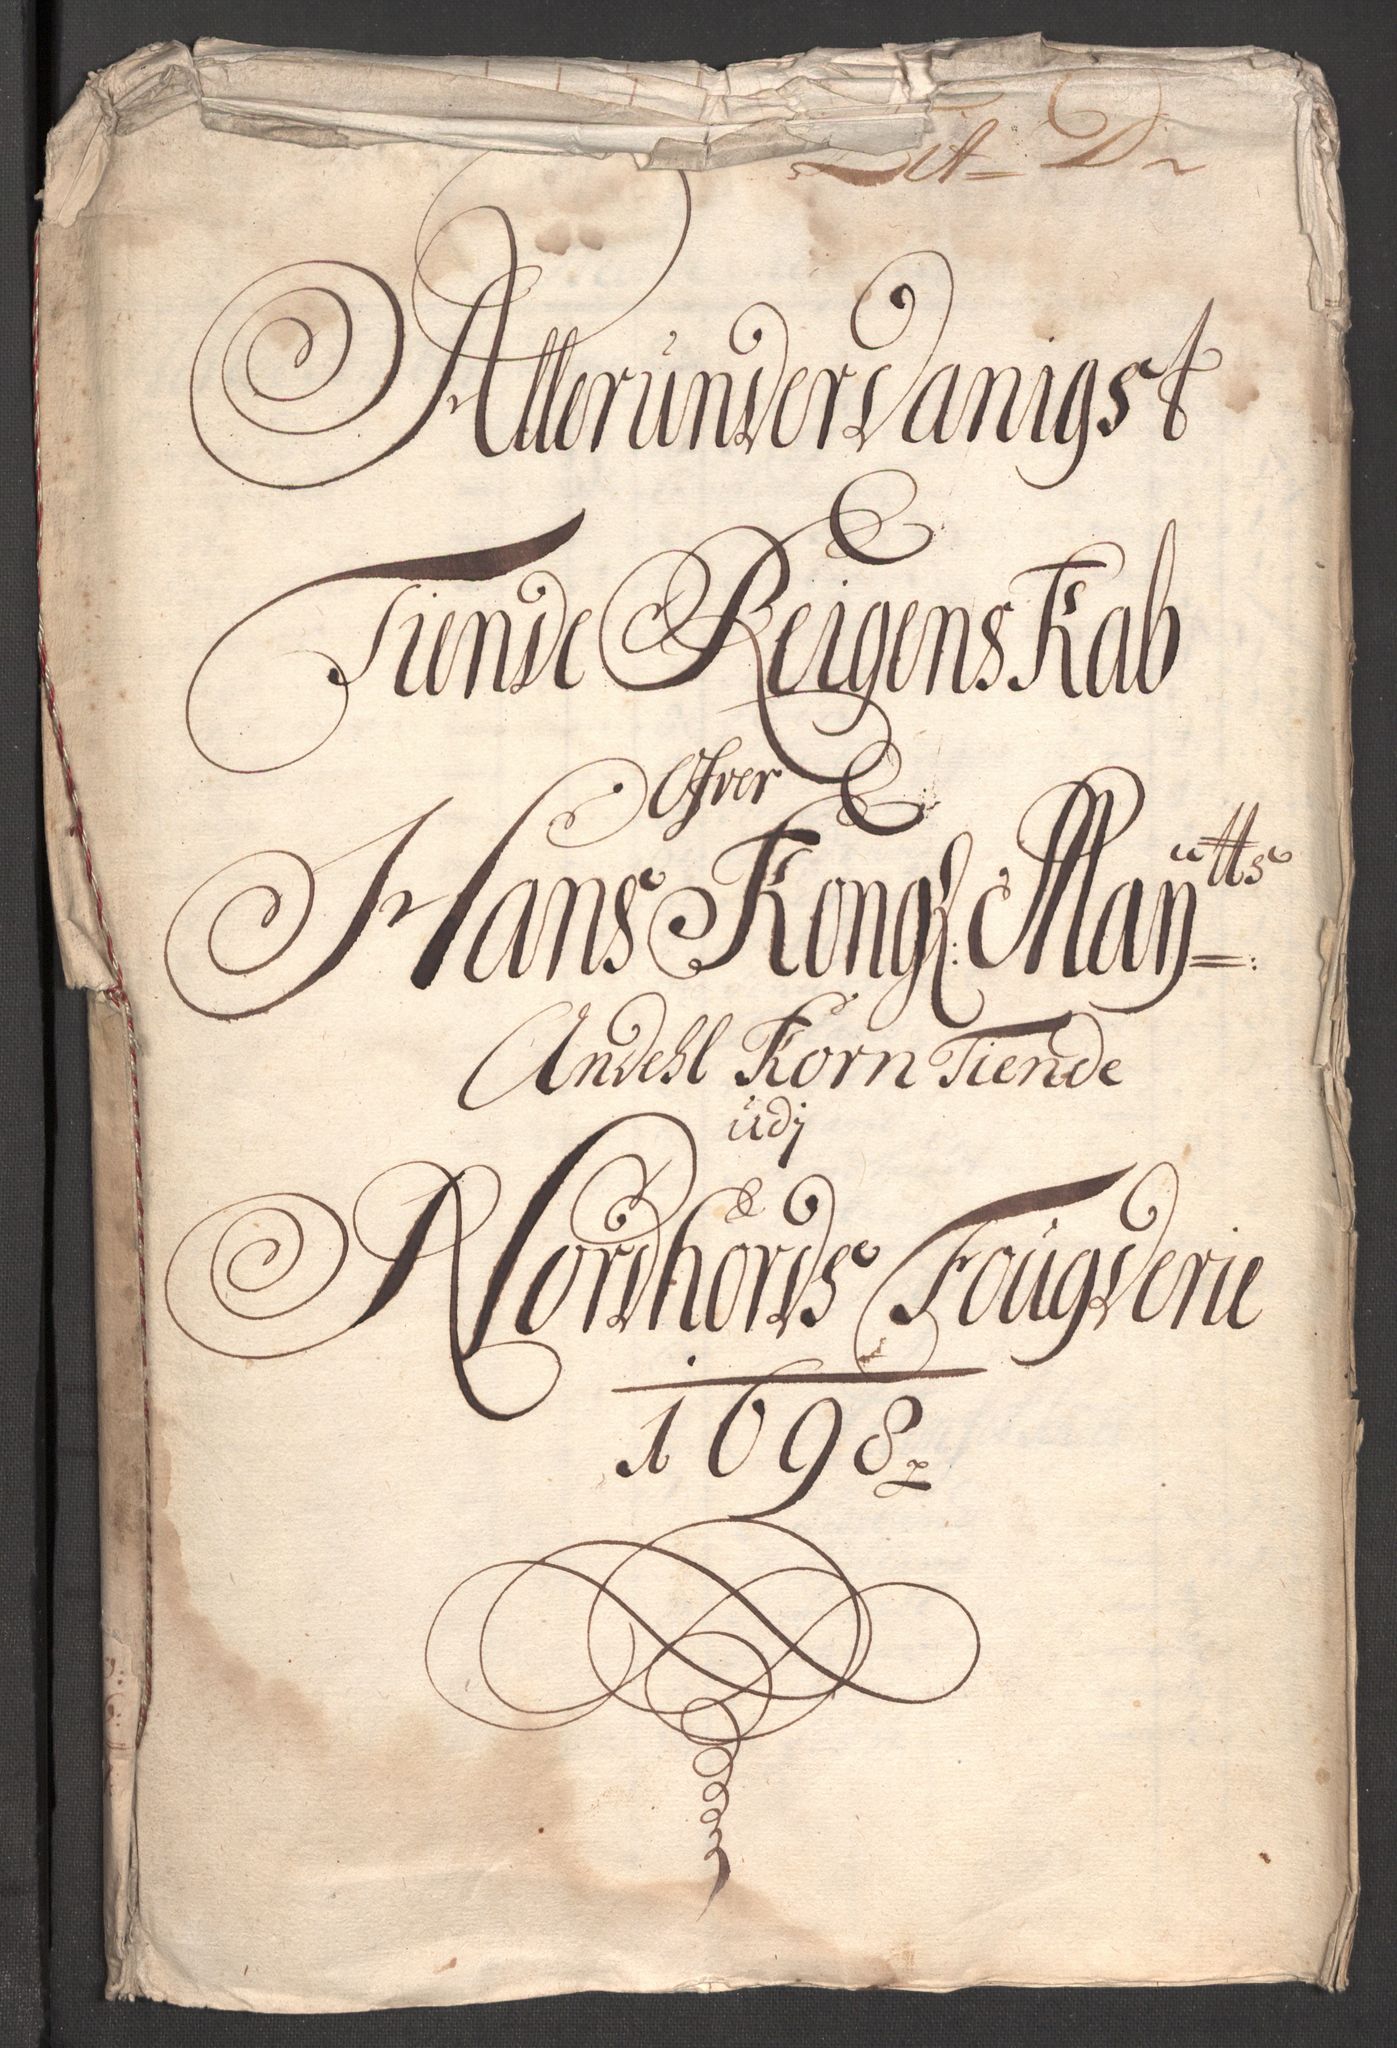 Lit= D
Allerunderdanigst
Tiende Reigenskab
Ofver
Hans Kongl: May=ttz:
Andehl Korn Tiende
udj
Nordhords Fougderie
1698